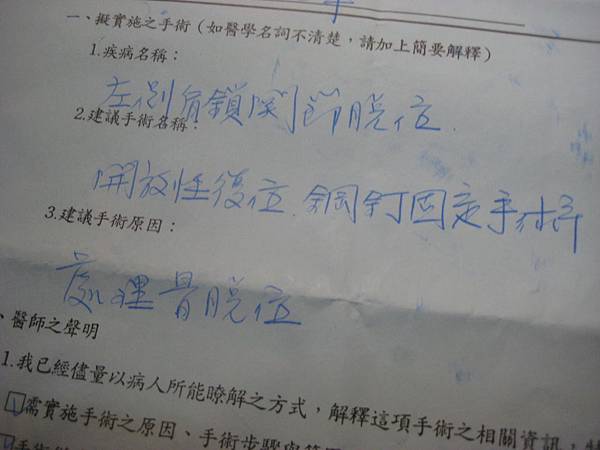 一、擬實施之手術（如醫學名詞不清楚，請加上簡要解釋）
1.疾病名稱：
左側肩鎖関節脱位.
2.建議手術名稱：
開放性復位.鋼釘固定手術
3.建議手術原因：
處理骨脱位
、醫師之聲明
1.我已經儘量以病人所能瞭解之方式，解釋這項手術之相關資訊，
需實施手術之原因、手術步驟與範